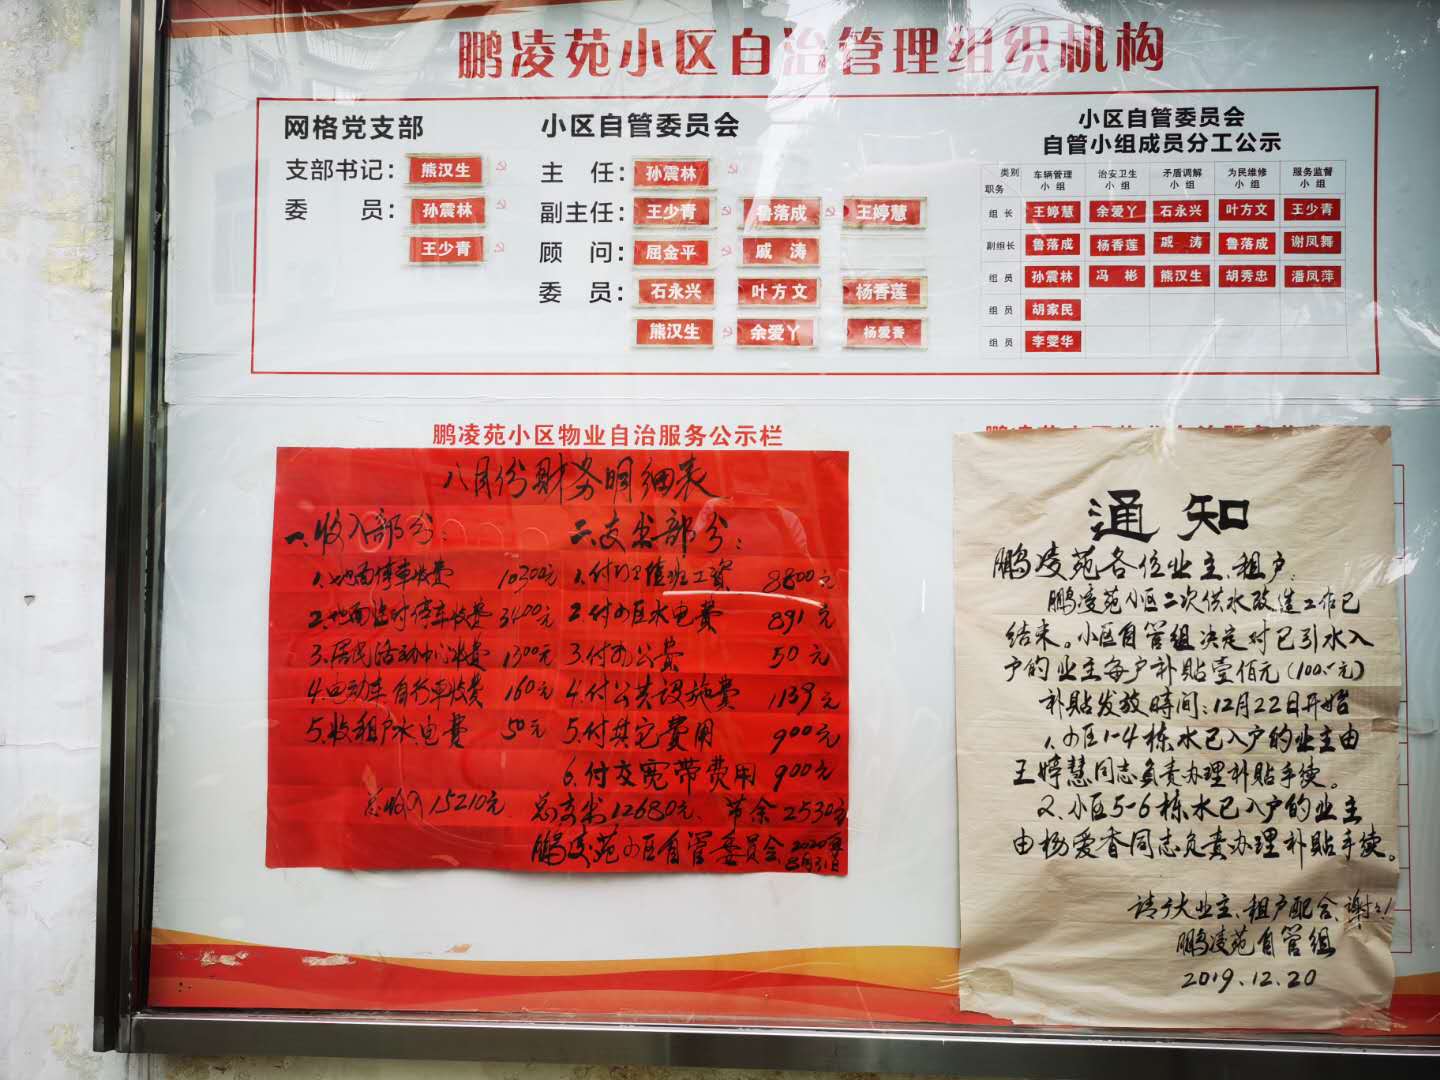 鹏凌苑小区自治管理组织机构
网格党支部
支部书记： 熊汉生
委 员： 孙震林
王少青
小区自管委员会
主 任： 孙震林
副主任： 王少青 鲁落成 王婷慧
顾 问： 屈金平 戚涛
委 员： 石永兴 叶方文 杨香莲
熊汉生 余爱丫 杨爱香
小区自管委员会
自管小组成员分工公示
类别 职务 车辆管理小组 治安卫生小组 矛盾调解小组 为民维修小组 服务监督小组
组长 王婷慧 余爱丫 石永兴 叶方文 王少青
副组长 鲁落成 杨香莲 戚涛 鲁落成 谢凤舞
组员 孙震林 冯彬 熊汉生 胡秀忠 潘凤萍
组员 胡家民
组员 李雯华
鹏凌苑小区物业自治服务公示栏
八月份财务明细表
一、收入部分：
1.地面停车收费 10300元
2.地面临时停车收费 3400元
3.居民活动中心收费 1300元
4.电动车自行车收费 160元
5.收租户水电费 50元
总收入15210元
二、支出部分：
1.付门卫值班工资 8800元
2.付小区水电费 891元
3.付办公费 50元
4.付公共设施费 1139元
5.付其它费用 900元
6.付交宽带费用 900元
总支出12680元、节余2530元
鹏凌苑小区自管委员会 2020年
8月31日
通知
鹏凌苑各位业主、租户：
鹏凌苑小区二次供水改造工作已
结束。小区自管组决定对已引水入
户的业主每户补贴壹佰元（100.-元）
补贴发放时间：12月22日开始
1.小区1-4栋水已入户的业主由
王婷慧同志负责办理补贴手续。
2.小区5-6栋水已入户的业主
由杨爱香同志负责办理补贴手续。
请广大业主、租户配合，谢谢！
鹏凌苑自管组
2019.12.20